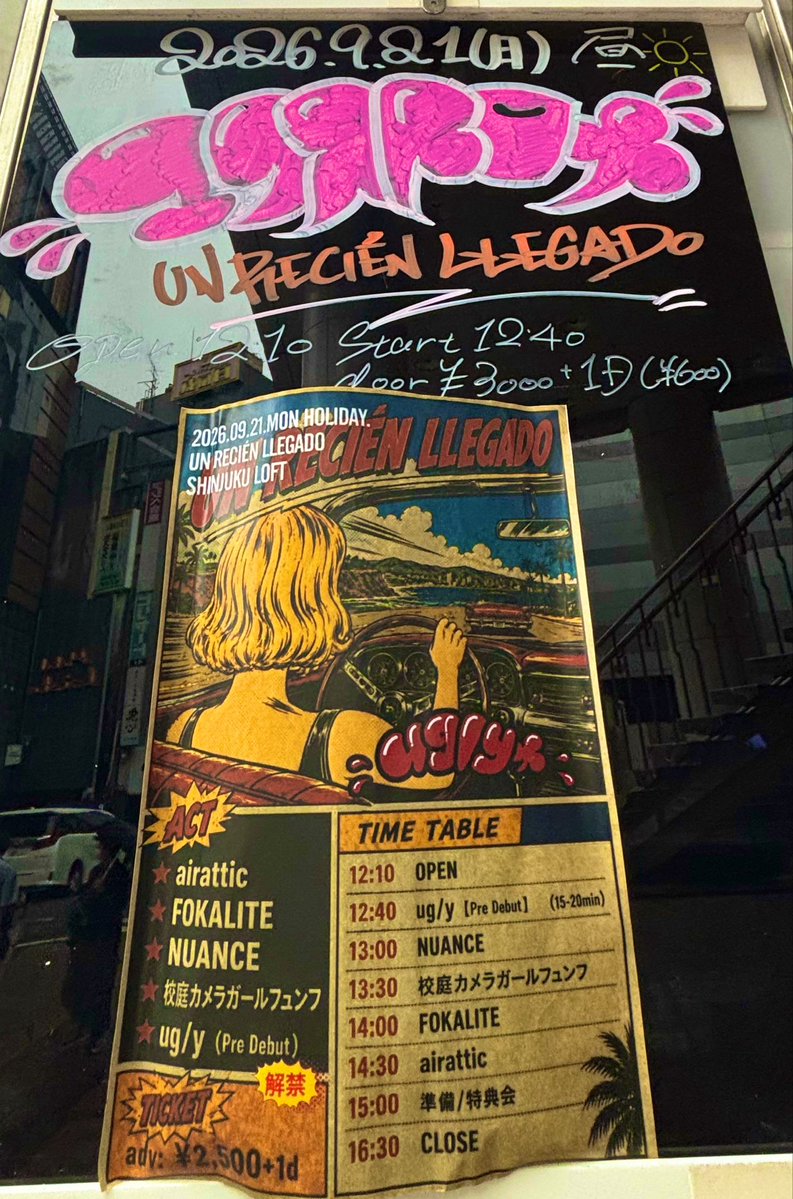 2026.9.21(月) 昼
UN RECIÉN LLEGADO
Open 12:10 Start 12:40
door ¥3000+1D (¥600)
UN RECIÉN LLEGADO
2026.09.21.MON.HOLIDAY.
UN RECIÉN LLEGADO
SHINJUKU LOFT
ugly
ACT
airattic
FOKALITE
NUANCE
校庭カメラガールフュンフ
ug/y (Pre Debut)
解禁
TICKET
adv: ¥2,500+1d
TIME TABLE
12:10 OPEN
12:40 ug/y [Pre Debut] (15-20min)
13:00 NUANCE
13:30 校庭カメラガールフュンフ
14:00 FOKALITE
14:30 airattic
15:00 準備/特典会
16:30 CLOSE